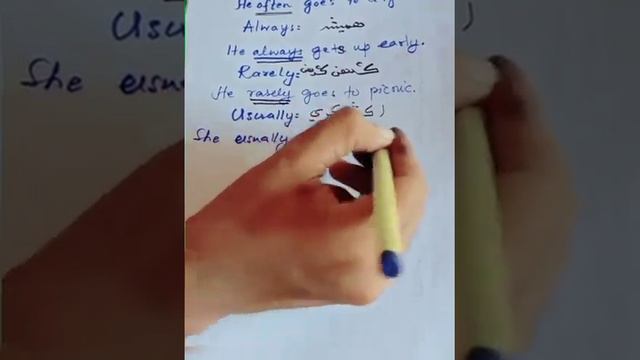 He often goes to
Always: هميشہ
He always gets up early.
Rarely: ڪڏهن ڪڏهن
He rarely goes to picnic.
Usually: اڪثر ڪري
She usually